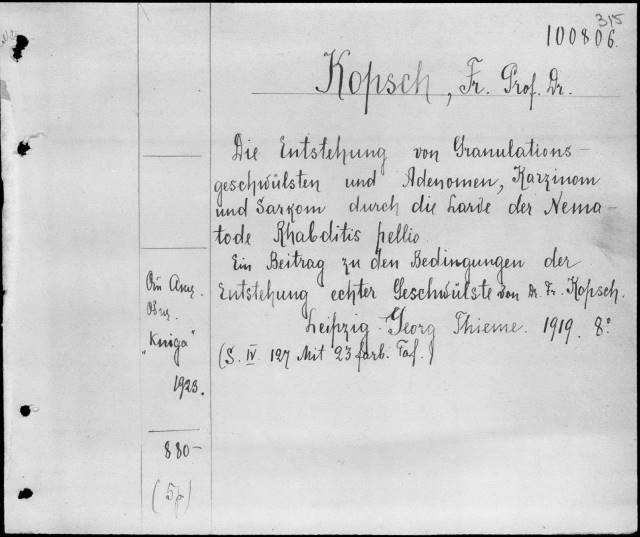 315
100806
Kopsch, Fr. Prof. Dr.
Die Entstehung von Granulations-
geschwülsten und Adenomen, Karzinom
und Sarkom durch die Larve der Nema-
tode Rhabditis pellio.
Ein Beitrag zu den Bedingungen der
Entstehung echter Geschwülste von Dr. Fr. Kopsch.
Leipzig. Georg Thieme. 1919. 8°
(S. IV. 127 Mit 23 farb. Taf.)
"Kniga"
1923.
880-
(5p)